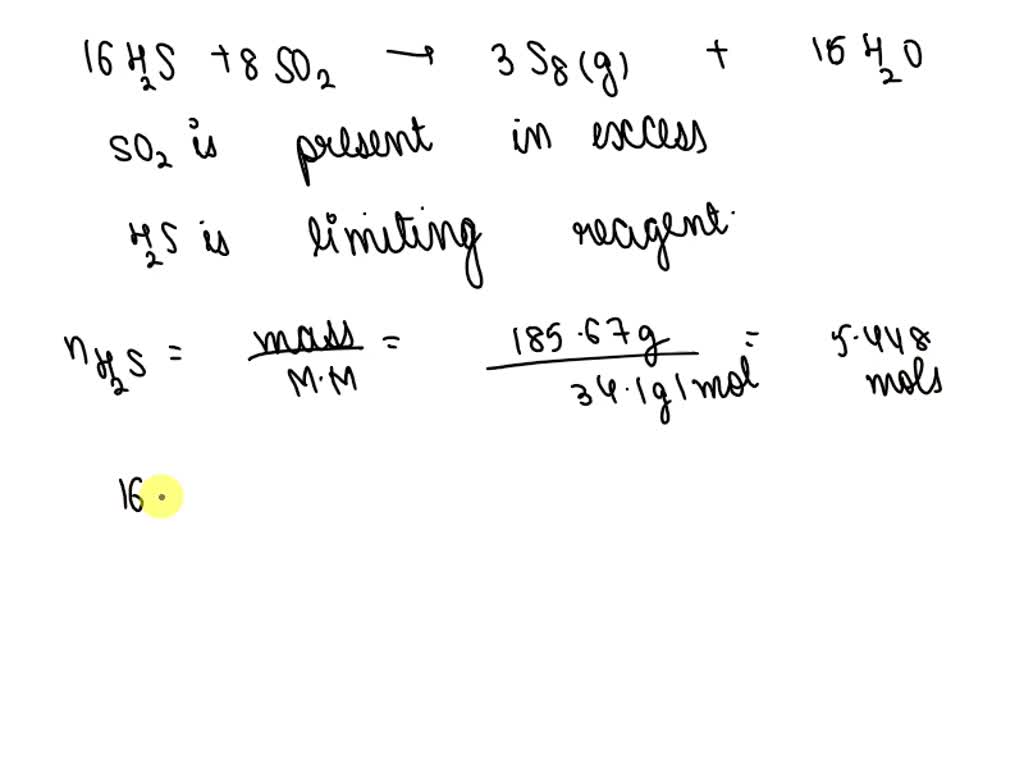 16 H2S + 8 SO2 → 3 S8 (g) + 16 H2O
SO2 is present in excess
H2S is limiting reagent.
nH2S = mass / M.M = 185.67g / 34.1g/mol = 5.448 mols
16